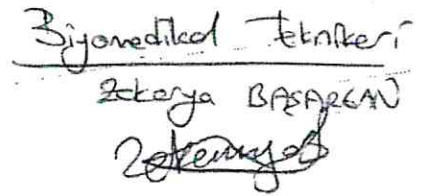 Biyomedikal Teknikeri
Zekerya BAŞARGAN
Zekerya